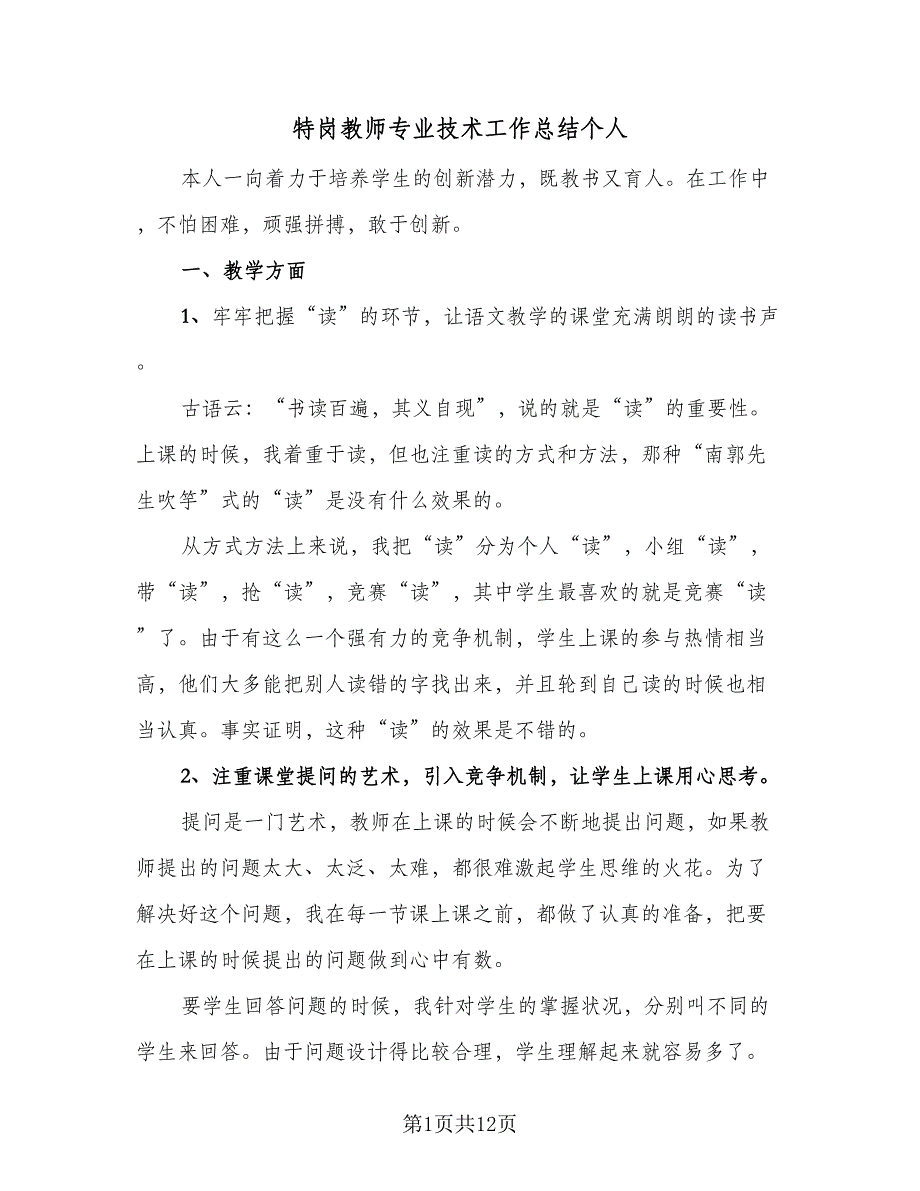 特岗教师专业技术工作总结个人
本人一向着力于培养学生的创新潜力，既教书又育人。在工作中
，不怕困难，顽强拼搏，敢于创新。
一、教学方面
1、牢牢把握“读”的环节，让语文教学的课堂充满朗朗的读书声
。
古语云：“书读百遍，其义自现”，说的就是“读”的重要性。
上课的时候，我着重于读，但也注重读的方式和方法，那种“南郭先
生吹竽”式的“读”是没有什么效果的。
从方式方法上来说，我把“读”分为个人“读”，小组“读”，
带“读”，抢“读”，竞赛“读”，其中学生最喜欢的就是竞赛“读
”了。由于有这么一个强有力的竞争机制，学生上课的参与热情相当
高，他们大多能把别人读错的字找出来，并且轮到自己读的时候也相
当认真。事实证明，这种“读”的效果是不错的。
2、注重课堂提问的艺术，引入竞争机制，让学生上课用心思考。
提问是一门艺术，教师在上课的时候会不断地提出问题，如果教
师提出的问题太大、太泛、太难，都很难激起学生思维的火花。为了
解决好这个问题，我在每一节课上课之前，都做了认真的准备，把要
在上课的时候提出的问题做到心中有数。
要学生回答问题的时候，我针对学生的掌握状况，分别叫不同的
学生来回答。由于问题设计得比较合理，学生理解起来就容易多了。
第1页共12页